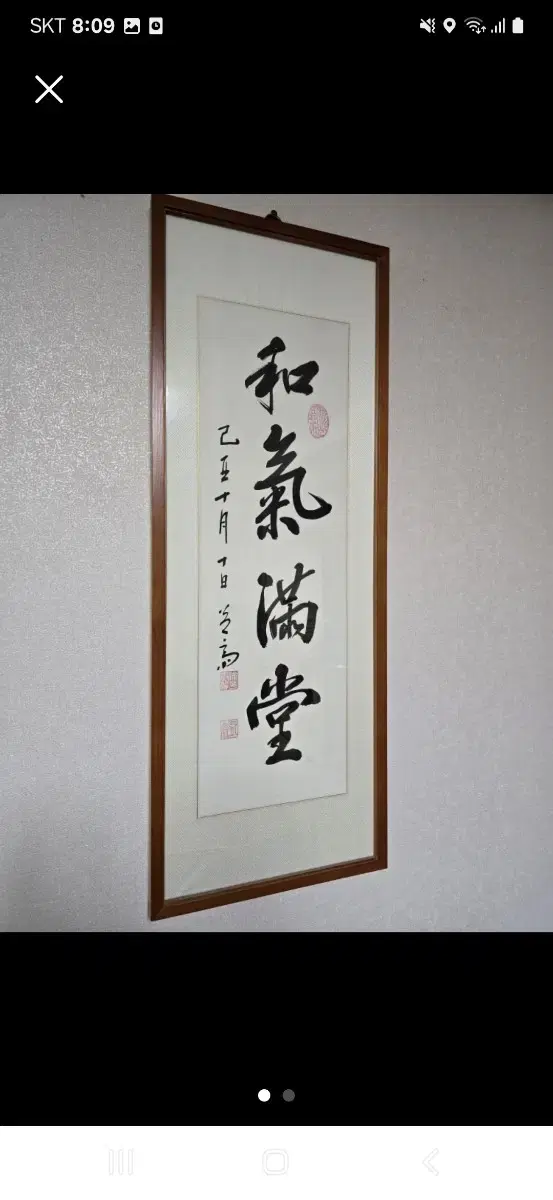 SKT 8:09
和氣滿堂
己亥十月十日